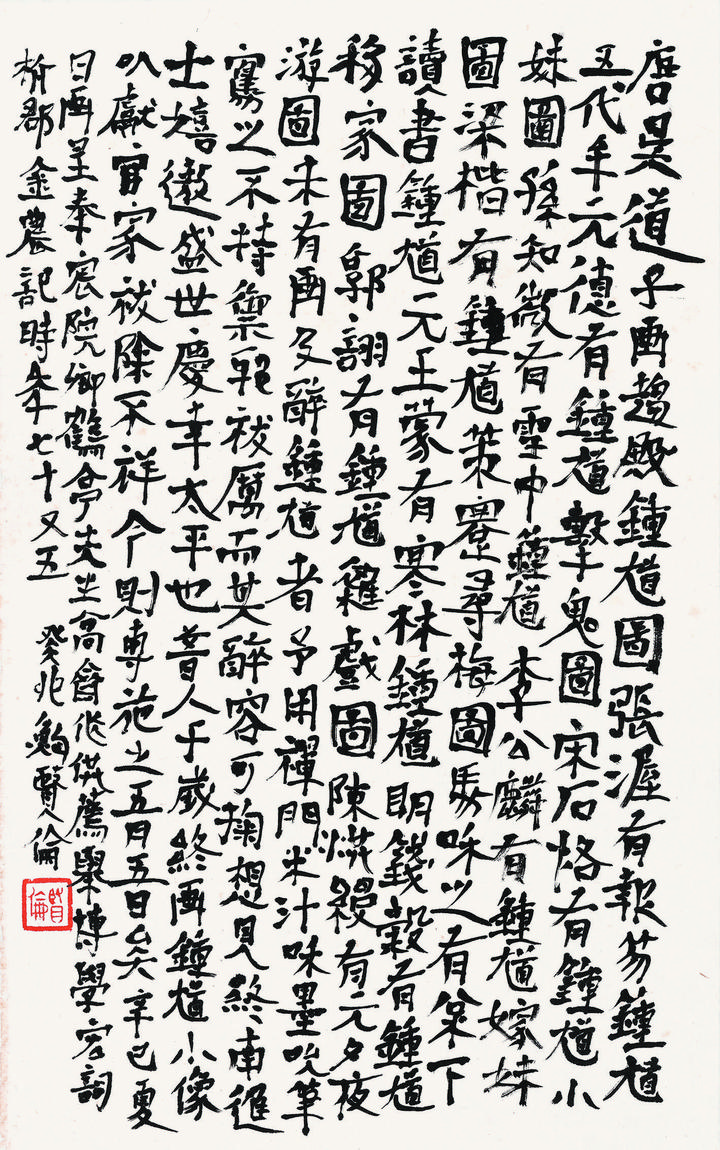 唐吳道子畫趨殿鍾馗圖張渥有執笏鍾馗
五代牟元德有鍾馗擊鬼圖宋石恪有鍾馗小
妹圖孫知微有雪中鍾馗李公麟有鍾馗嫁妹
圖梁楷有鍾馗策蹇尋梅圖馬和之有松下
讀書鍾馗元王蒙有寒林鍾馗明錢穀有鍾馗
移家圖郭詡有鍾馗雜戲圖陳洪綬有元夕夜
游圖未有畫及醉鍾馗者予用禪門米汁和墨吮筆
寫之不特御邪祓厲而其醉容可掬想見終南進
士嬉遨盛世慶幸太平也昔人于歲終畫鍾馗小像
以獻官家祓除不祥今則專施之五月五日矣辛巳夏
日畫呈奉宸院卿鶴亭先生高會作供薦舉博學宏詞
杭郡金農記時年七十又五 癸兆 賢倫
賢倫